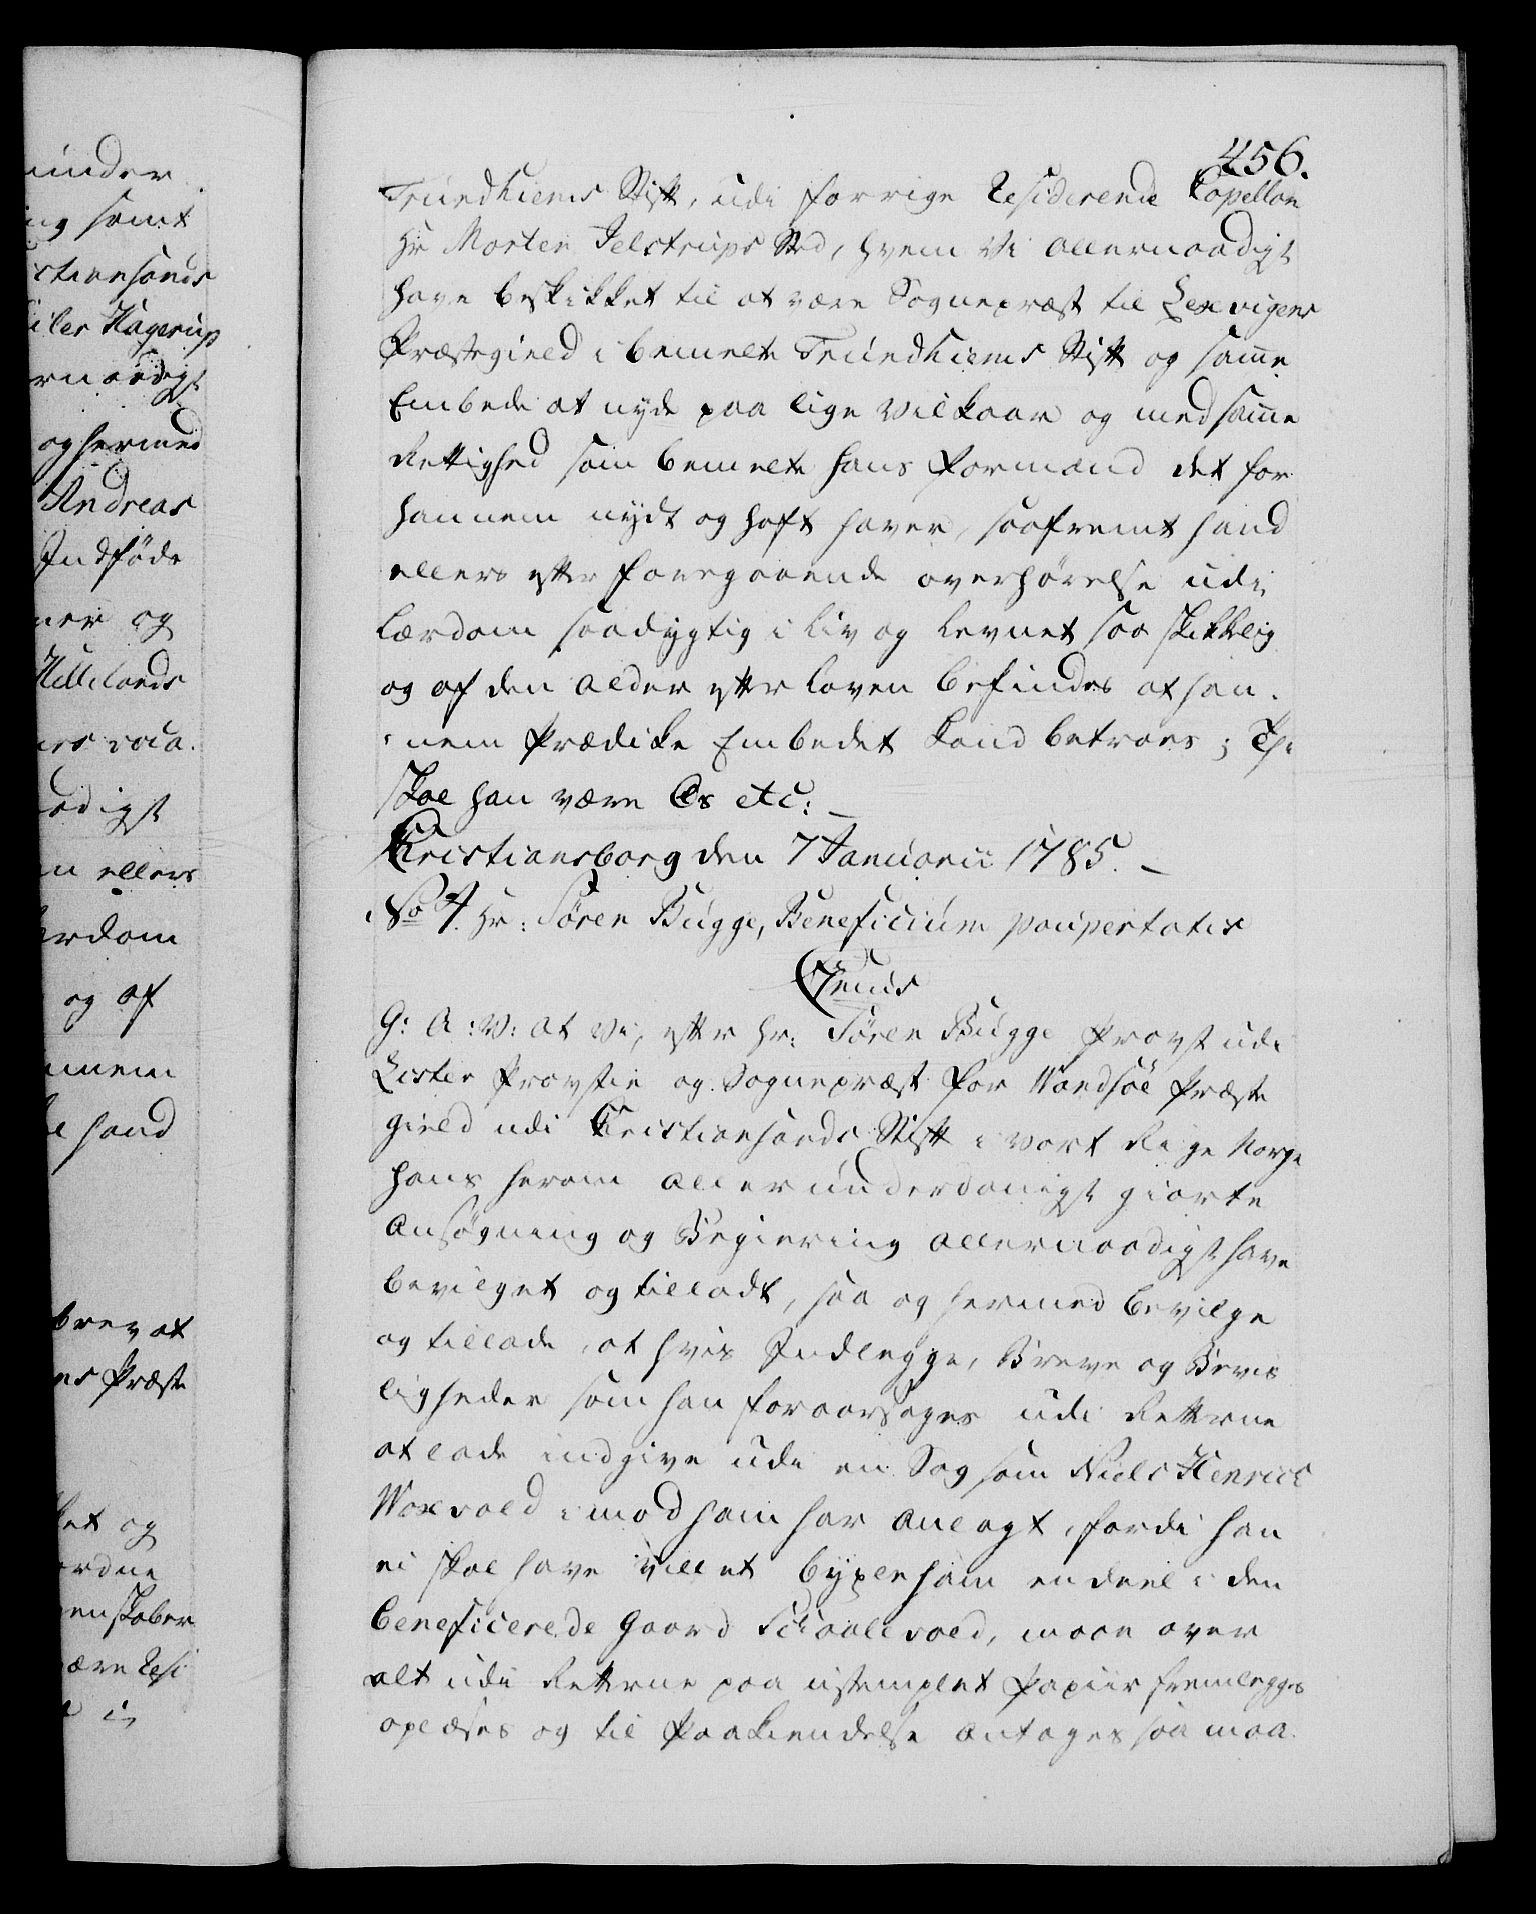 456.
Trundhiems Stift, udi forrige Residerende Capellan
Hr Morten Jelstrups Sted, hvem Vi allernaadigst
have beskikket til at være Sognepræst til Lexvigens
Præstegield i bemelte Trundhiems Stift og samme
Embede at nyde paa lige Vilkaar og med samme
Rettighed som bemelte hans Formand det for
hannem nydt og haft haver, saafremt hand
ellers efter foregaaende overhørelse udi
Lærdom saa dygtig i Liv og Levnet saa skikkelig
og af den Alder efter Loven befindes at han-
nem Prædike Embedet kand betroes; Thi
skal han være Os etc:
Christiansborg den 7 Januarii 1785.
No 4. Hr: Søren Bugge, Beneficium paupertatis
C. 7mus
G: A: V: at Vi, efter Hr: Søren Bugge Provst udi
Lister Provstie og Sognepræst for Wandsøe Præste
gield udi Christiansands Stift i vort Rige Norge
hans herom allerunderdanigst giorte
Ansøgning og Begiering allernaadigst have
bevilget og tilladt, saa og hermed bevilge
og tillade, at hvis Indlegge, Breve og Bevis
ligheder som han foraarsages udi Retterne
at lade indgive udi en Sag som Niels Henrich
Waxvold imod ham har anlagt, fordi han
ei skal have villet byxle ham en deel i den
beneficerede Gaard Schaalevold, maae over
alt udi Retterne paa ustemplet Papiir fremlegges
oplæses og til Paakiendelse antages saa maa
inder
ng samt
ctiansands
iler Hagerup
rnaadigst
og hermed
Andreas
Indføde
ner og
Hillelands
ers voca-
aadigst
n ellers
erdom
og af
nnem
hand
brev at
es Præste
ket og
ordne
enskaber
ære Resi